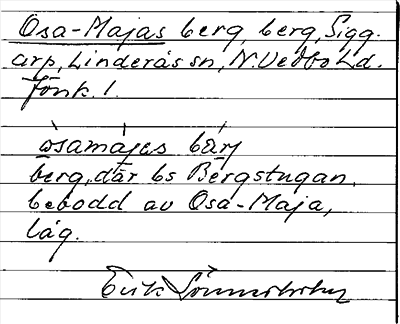 Osa-Majas berg, berg, Sigg-
arp, Linderås sn, N. Vedbo hd.
Jönk. l.
òsamájas bärj
berg, där bs Bergstugan,
bebodd av Osa-Maja,
låg.
Erik